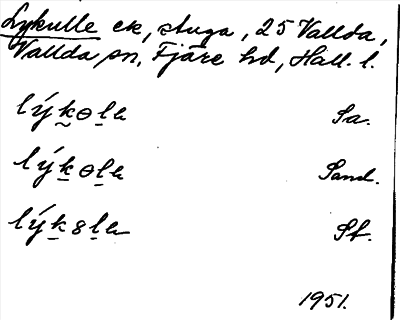 Lykulle ck, stuga, 25 Vallda,
Vallda sn, Fjäre hd, Hall. l.
lýk̰ɵl̠a Sa.
lýk̠ɵl̠a Sand.
lýk̠8l̠a Sf.
1951.